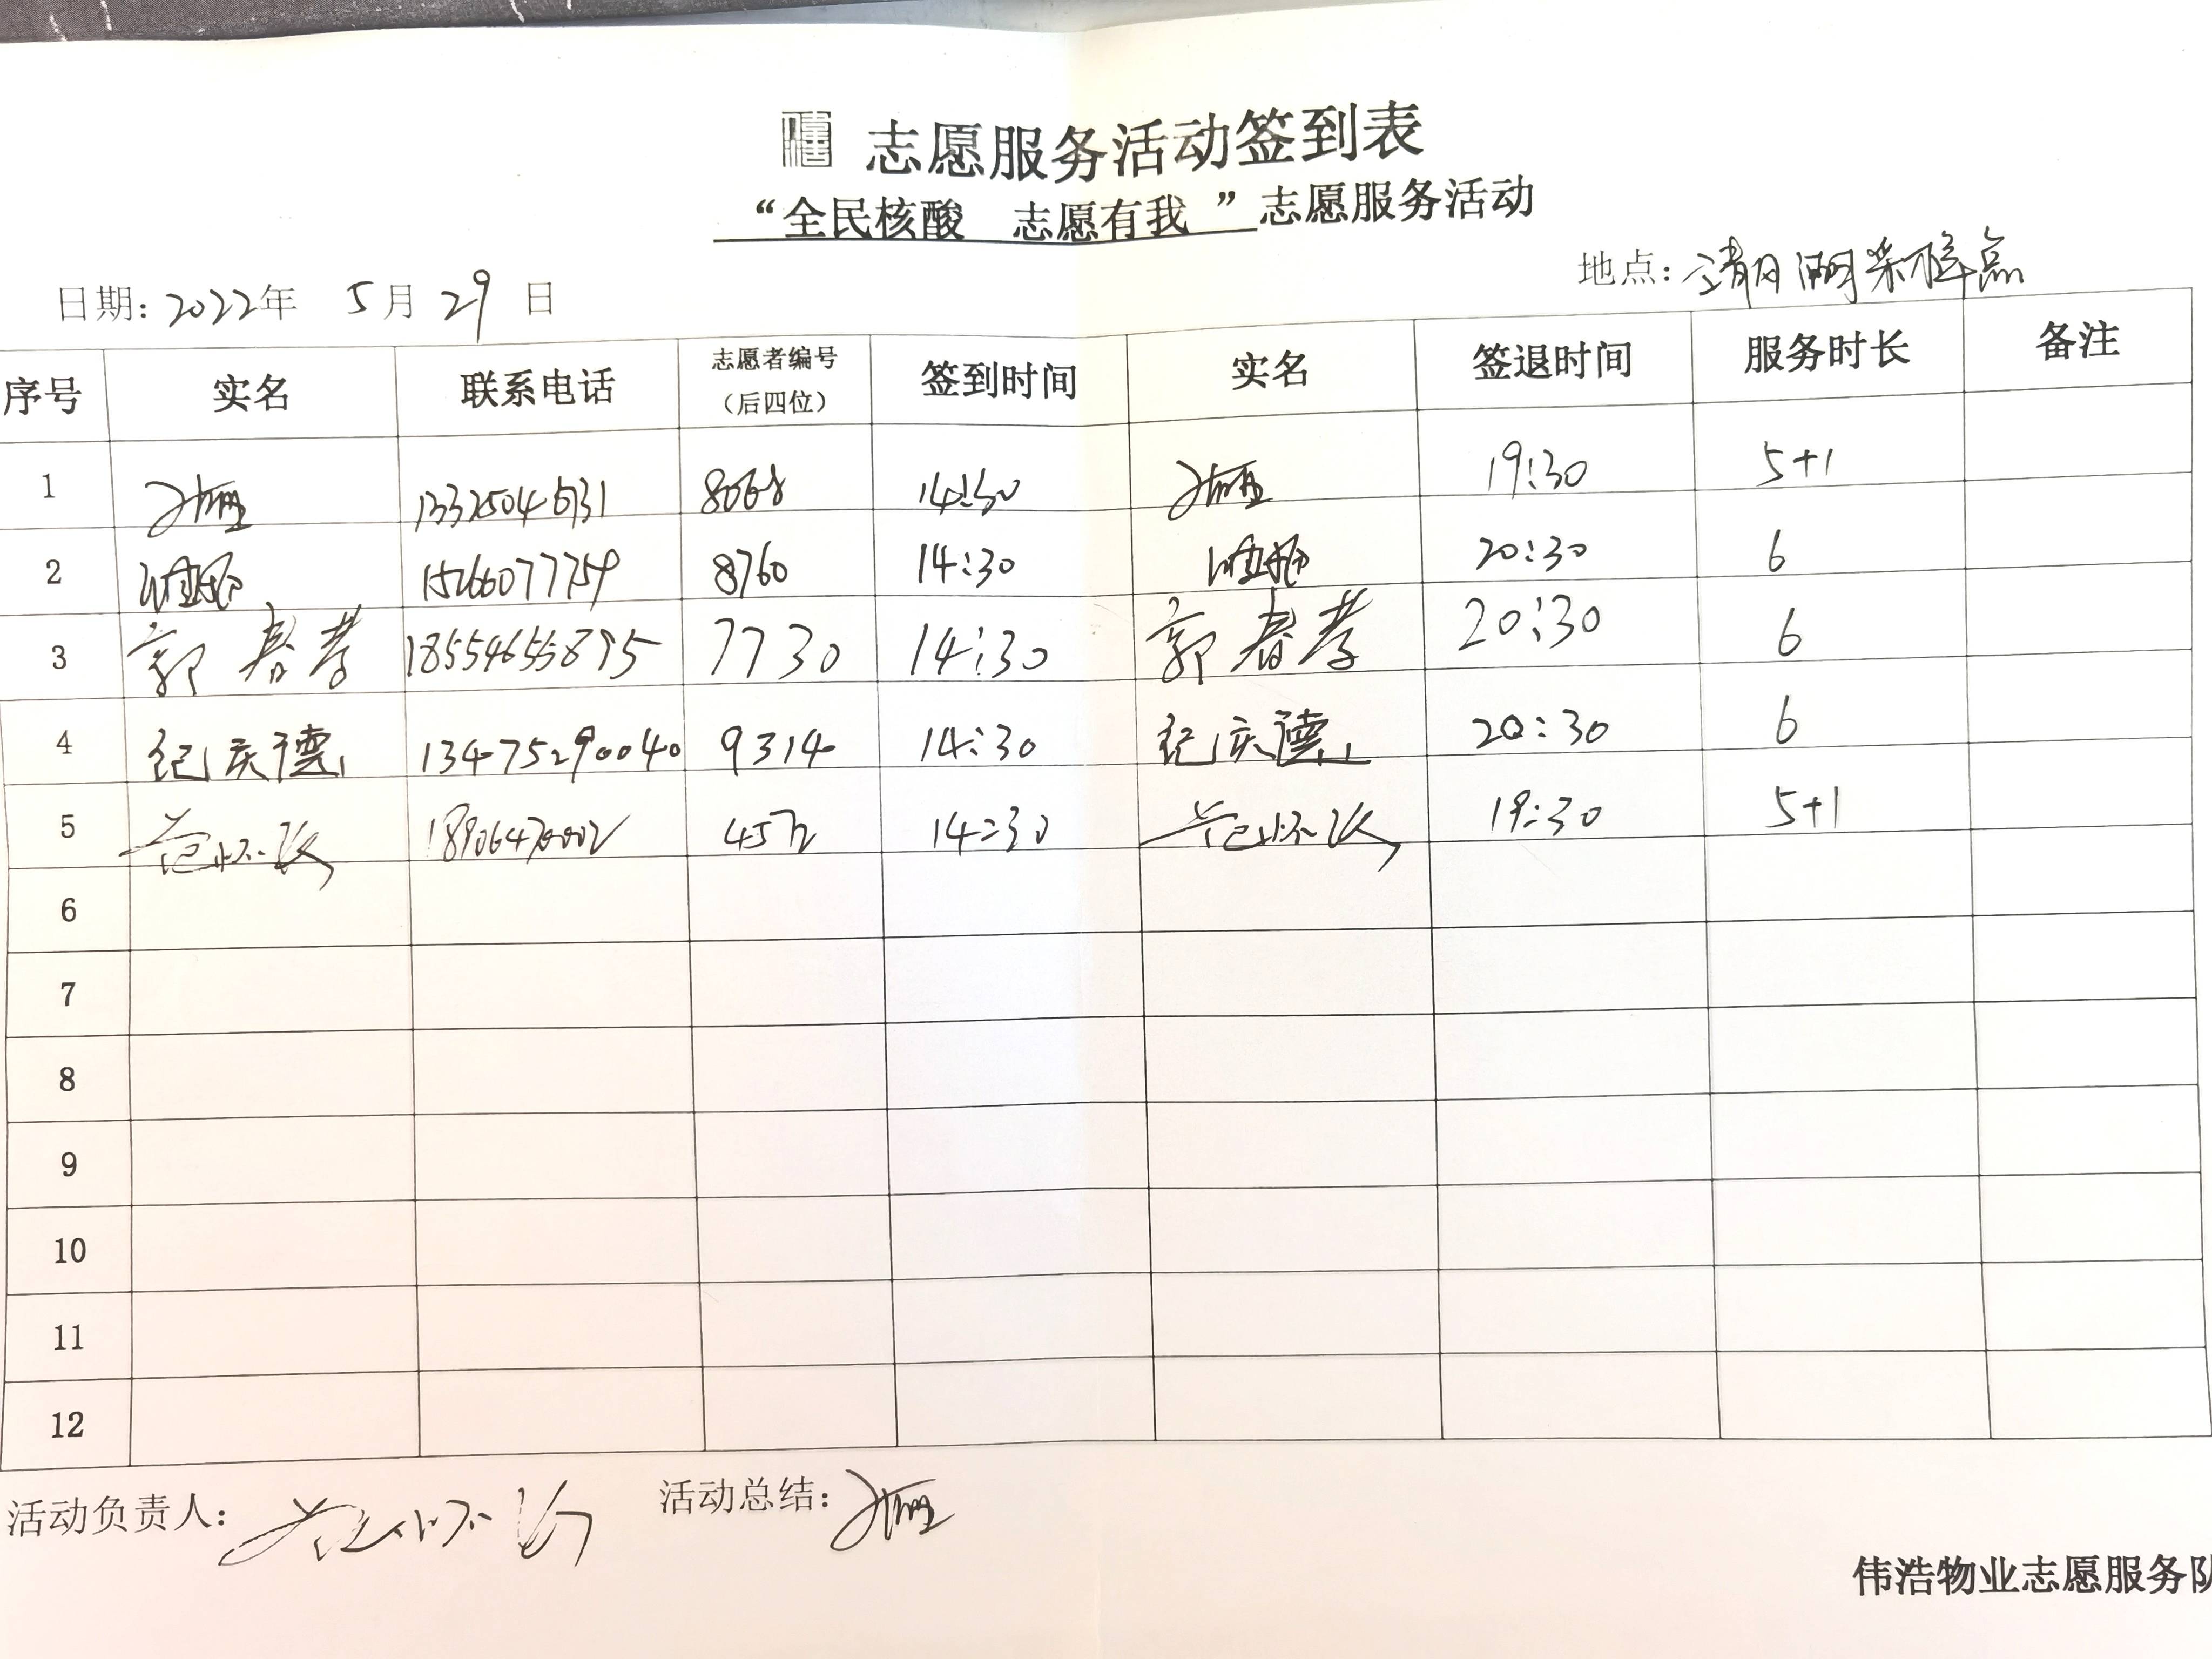 志愿服务活动签到表
“全民核酸 志愿有我”志愿服务活动
日期：2022年 5月29日 地点：清月湖采样点
序号 实名 联系电话 志愿者编号（后四位） 签到时间 实名 签退时间 服务时长 备注
1 13325046131 8068 14:30 19:30 5+1
2 15266077759 8760 14:30 20:30 6
3 郭春孝 18554655895 7730 14:30 郭春孝 20:30 6
4 纪庆德 13475290040 9314 14:30 纪庆德 20:30 6
5 18906470002 4572 14:30 19:30 5+1
6
7
8
9
10
11
12
活动负责人： 活动总结：
伟浩物业志愿服务队